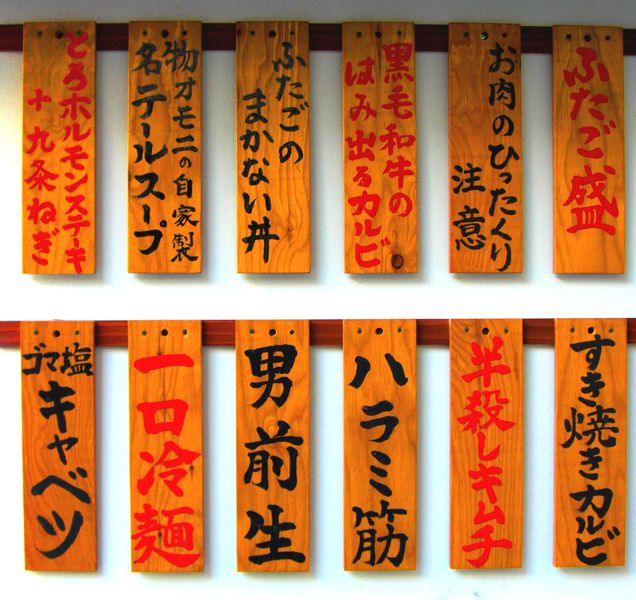 ふたご盛
お肉のひったくり
注意
黒毛和牛の
はみ出るカルビ
ふたごの
まかない丼
物オモニの自家製
名テールスープ
とろホルモンステーキ
十九条ねぎ
すき焼きカルビ
半殺しキムチ
ハラミ筋
男前生
一口冷麺
ゴマ塩
キャベツ